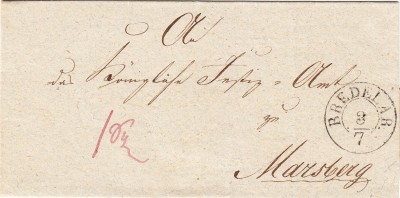 An
das Königliche Justiz-Amt
zu
Marsberg
BREDELAR
8/7